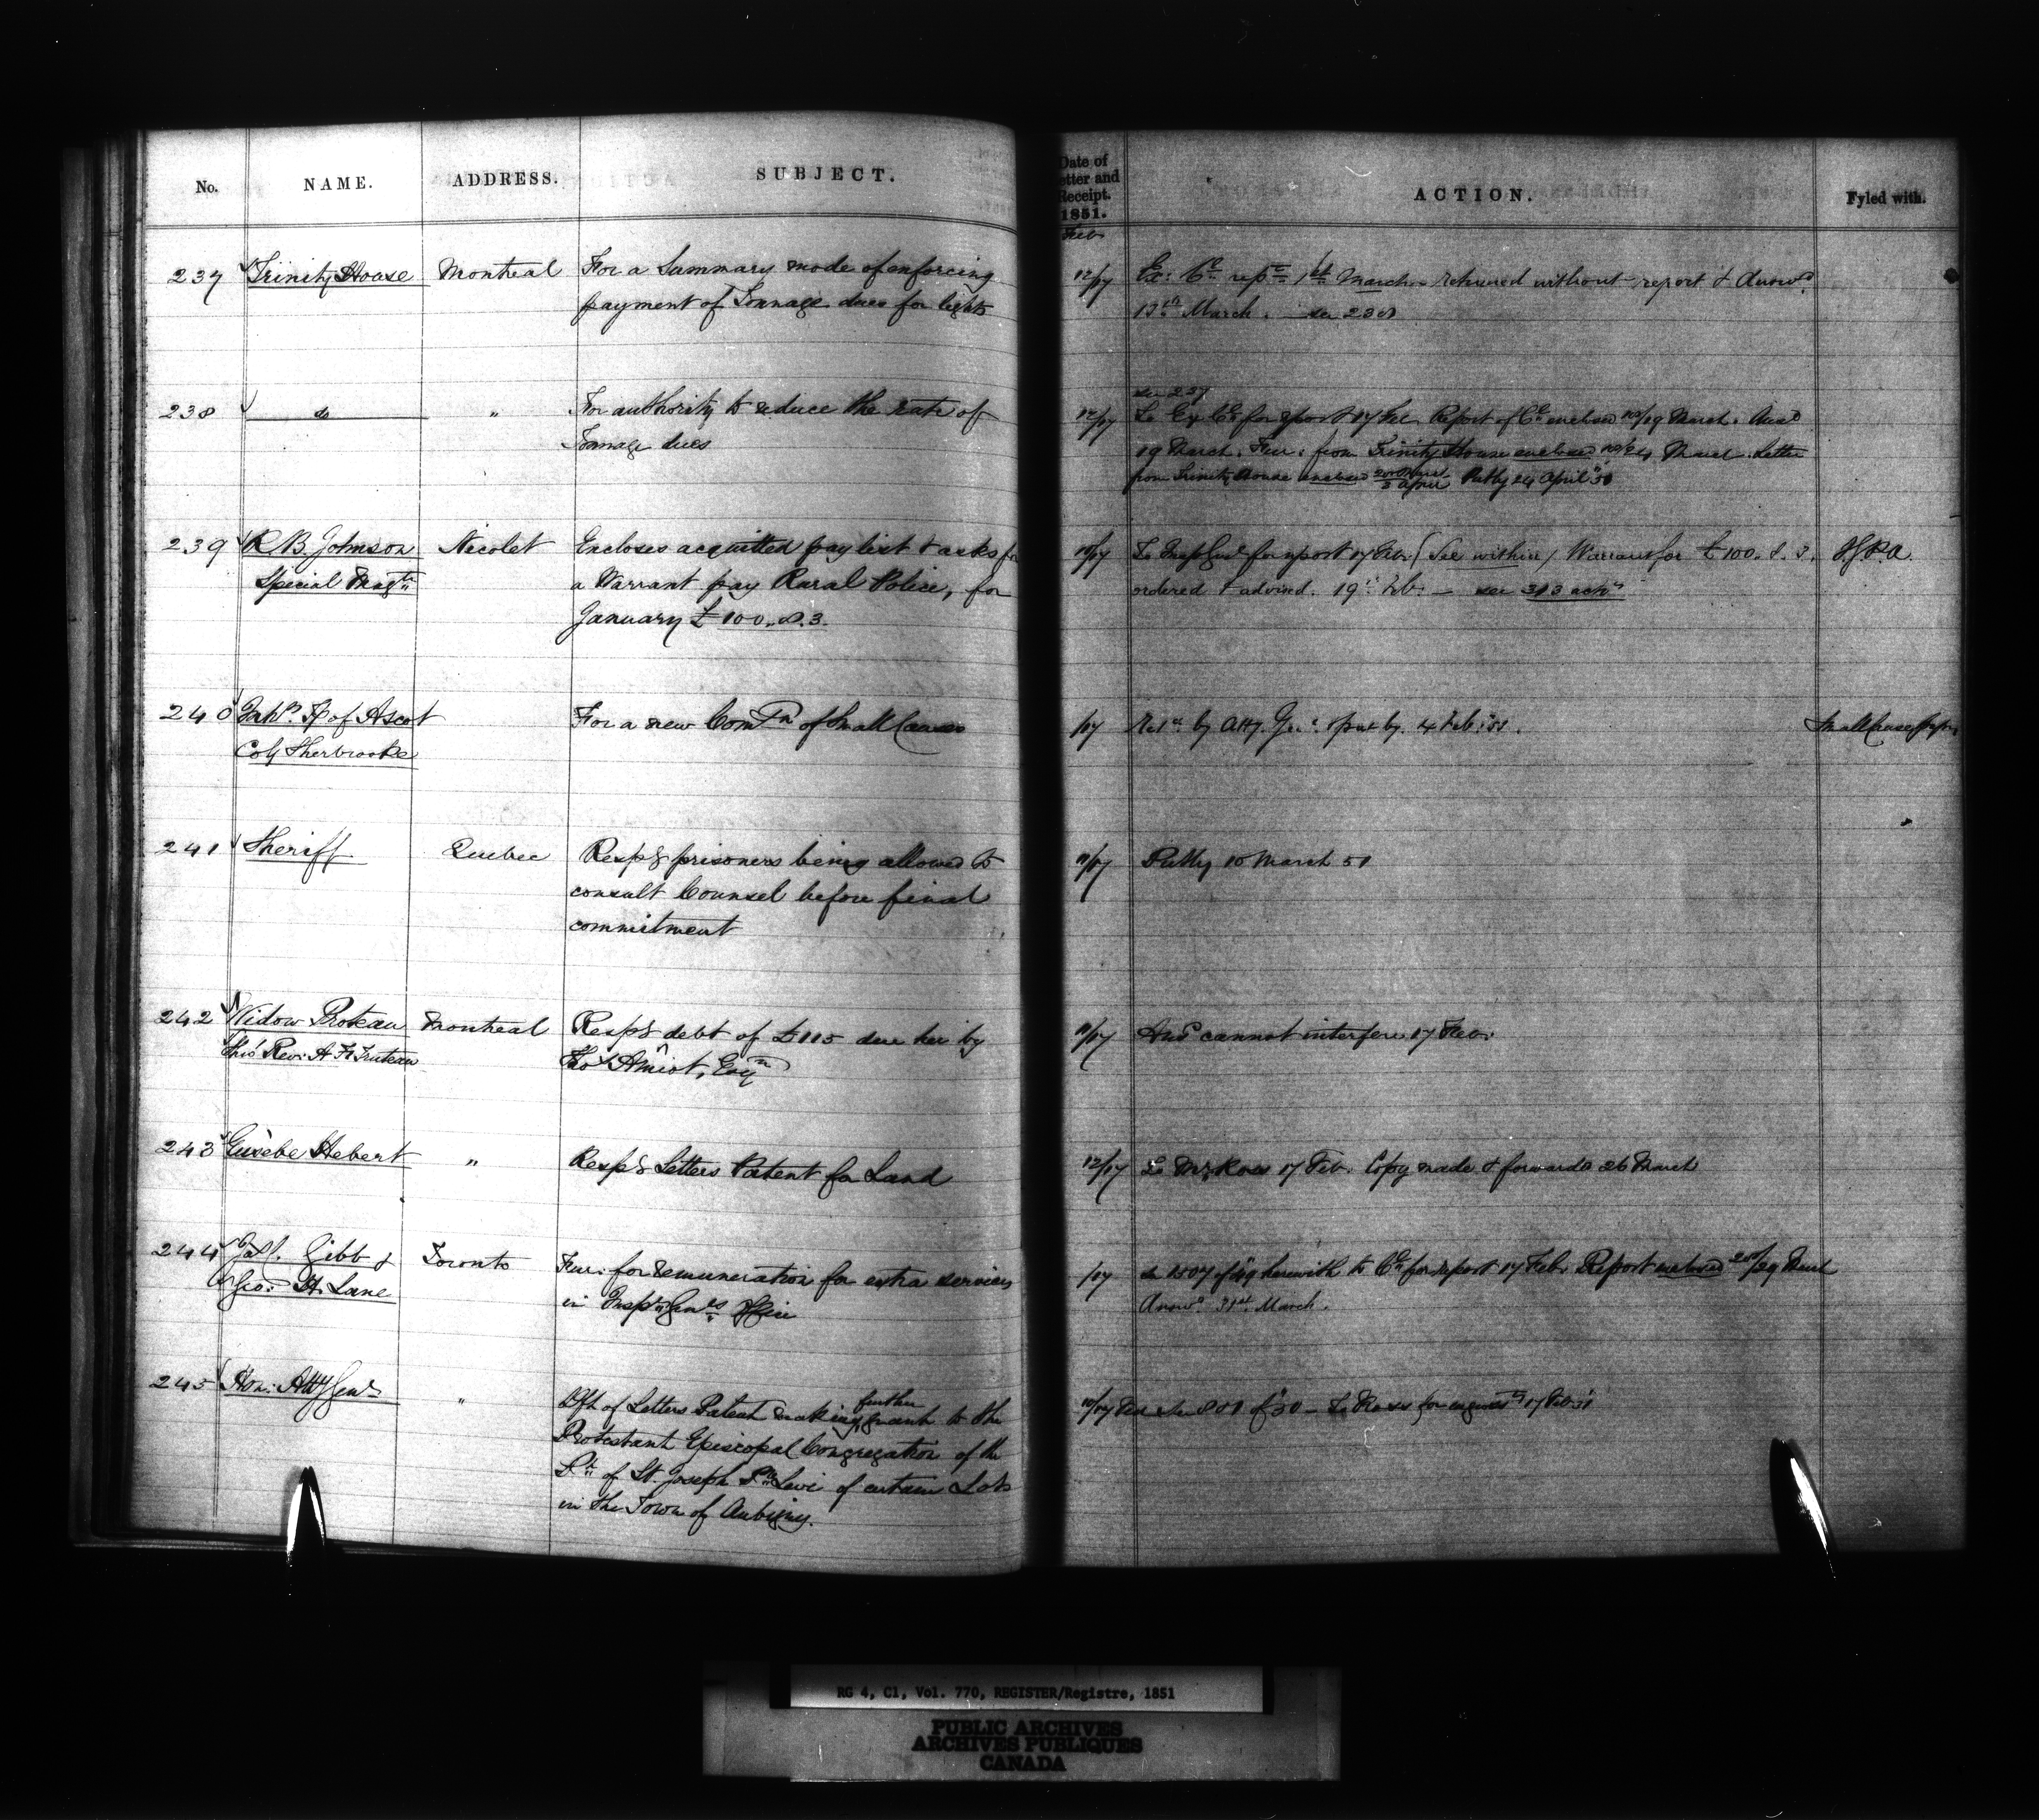 No. NAME. ADDRESS. SUBJECT.
Date of
etter and
Receipt.
1851.
Feb
ACTION. Fyled with.
237 Trinity House Montreal For a Summary mode of enforcing
payment of Tonnage dues for lights
12/17 Ex: Cl repn 1st March returned without report & Answd
13th March. see 238
238 do " For authority to reduce the rate of
Tonnage dues
see 237
12/17 To Ex Cl for report 17 Feb. Report of Cl enclosed /19 March. Ansd
19 March. Fur: from Trinity House enclosed March. Letter
from Trinity House enclosed April Putby 24 April 51
239 R. B. Johnson Nicolet Encloses acquitted pay list & asks for
Special Magte a Warrant pay Rural Police, for
January £100.8.3.
To Inspr Genl for report 17 Feb. (See within) Warrant for £100.8.3.
ordered & advised. 19th Feb. — see 313
240 Inhts Tp of Ascot For a new Comn of Small Causes
Coy Sherbrooke
/17 by Atty. Gen. & put by. 4 Feb: 51.
241 Sheriff Quebec Respg prisoners being allowed to
consult Counsel before final
commitment
11/17 Putby 10 March 51
242 Widow Proteau Montreal Respg debt of £115 due her by
thro' Rev: A. F. Truteau Thos Amiot, Esqr
11/17 Ansd cannot interfere 17 Feb:
243 Eusèbe Hebert " Respg Letters Patent for Land
12/17 To Mr. Ross 17 Feb. Copy made & forwarded 26 March
244 Jas. Gibb & Toronto Fur: for remuneration for extra services
Geo: H. Lane in Inspr Genls Office
/17 see 1507 of 49 herewith to Cl for report 17 Feb. Report enclosed /29 March
Answd 31st March.
245 Hon: Atty Genl " Dft of Letters Patent making further grant to the
Protestant Episcopal Congregation of the
Ph of St. Joseph Pte Levi of certain Lots
in the Town of Aubigny.
10/17 Feb see 801 of 50 — To Ross for engrosst 17 Feb 51
RG 4, C1, Vol. 770, REGISTER/Registre, 1851
PUBLIC ARCHIVES
ARCHIVES PUBLIQUES
CANADA